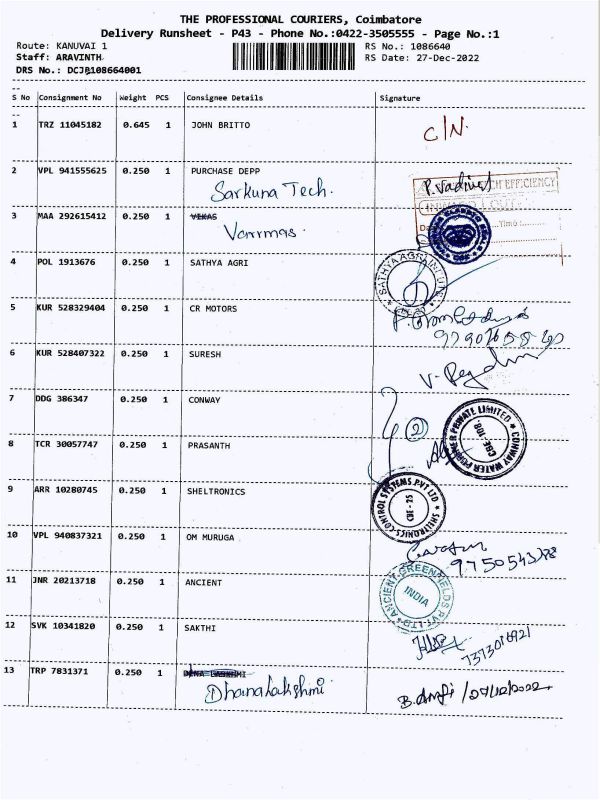 THE PROFESSIONAL COURIERS, Coimbatore
Delivery Runsheet - P43 - Phone No.:0422-3505555 - Page No.:1
Route: KANUVAI 1 RS No.: 1086640
Staff: ARAVINTH RS Date: 27-Dec-2022
DRS No.: DCJB108664001
S No Consignment No Weight PCS Consignee Details Signature
1 TRZ 11045182 0.645 1 JOHN BRITTO C/N.
2 VPL 941555625 0.250 1 PURCHASE DEPP P. Vadivel
Sarkuna Tech.
3 MAA 292615412 0.250 1 VIKAS
Varrmas.
4 POL 1913676 0.250 1 SATHYA AGRI SATHYA AGRI
5 KUR 528329404 0.250 1 CR MOTORS
6 KUR 528407322 0.250 1 SURESH
7 DDG 386347 0.250 1 CONWAY 2
CONWAY WATER PRIVATE LIMITED CBE-108
8 TCR 30057747 0.250 1 PRASANTH
9 ARR 10280745 0.250 1 SHELTRONICS SHELTRONICS CONTROL SYSTEMS PVT LTD CBE-25
10 VPL 940837321 0.250 1 OM MURUGA
9750543278
11 JNR 20213718 0.250 1 ANCIENT ANCIENT GREENFIELDS PVT LTD INDIA
12 SVK 10341820 0.250 1 SAKTHI
13 TRP 7831371 0.250 1
Dhanalakshmi